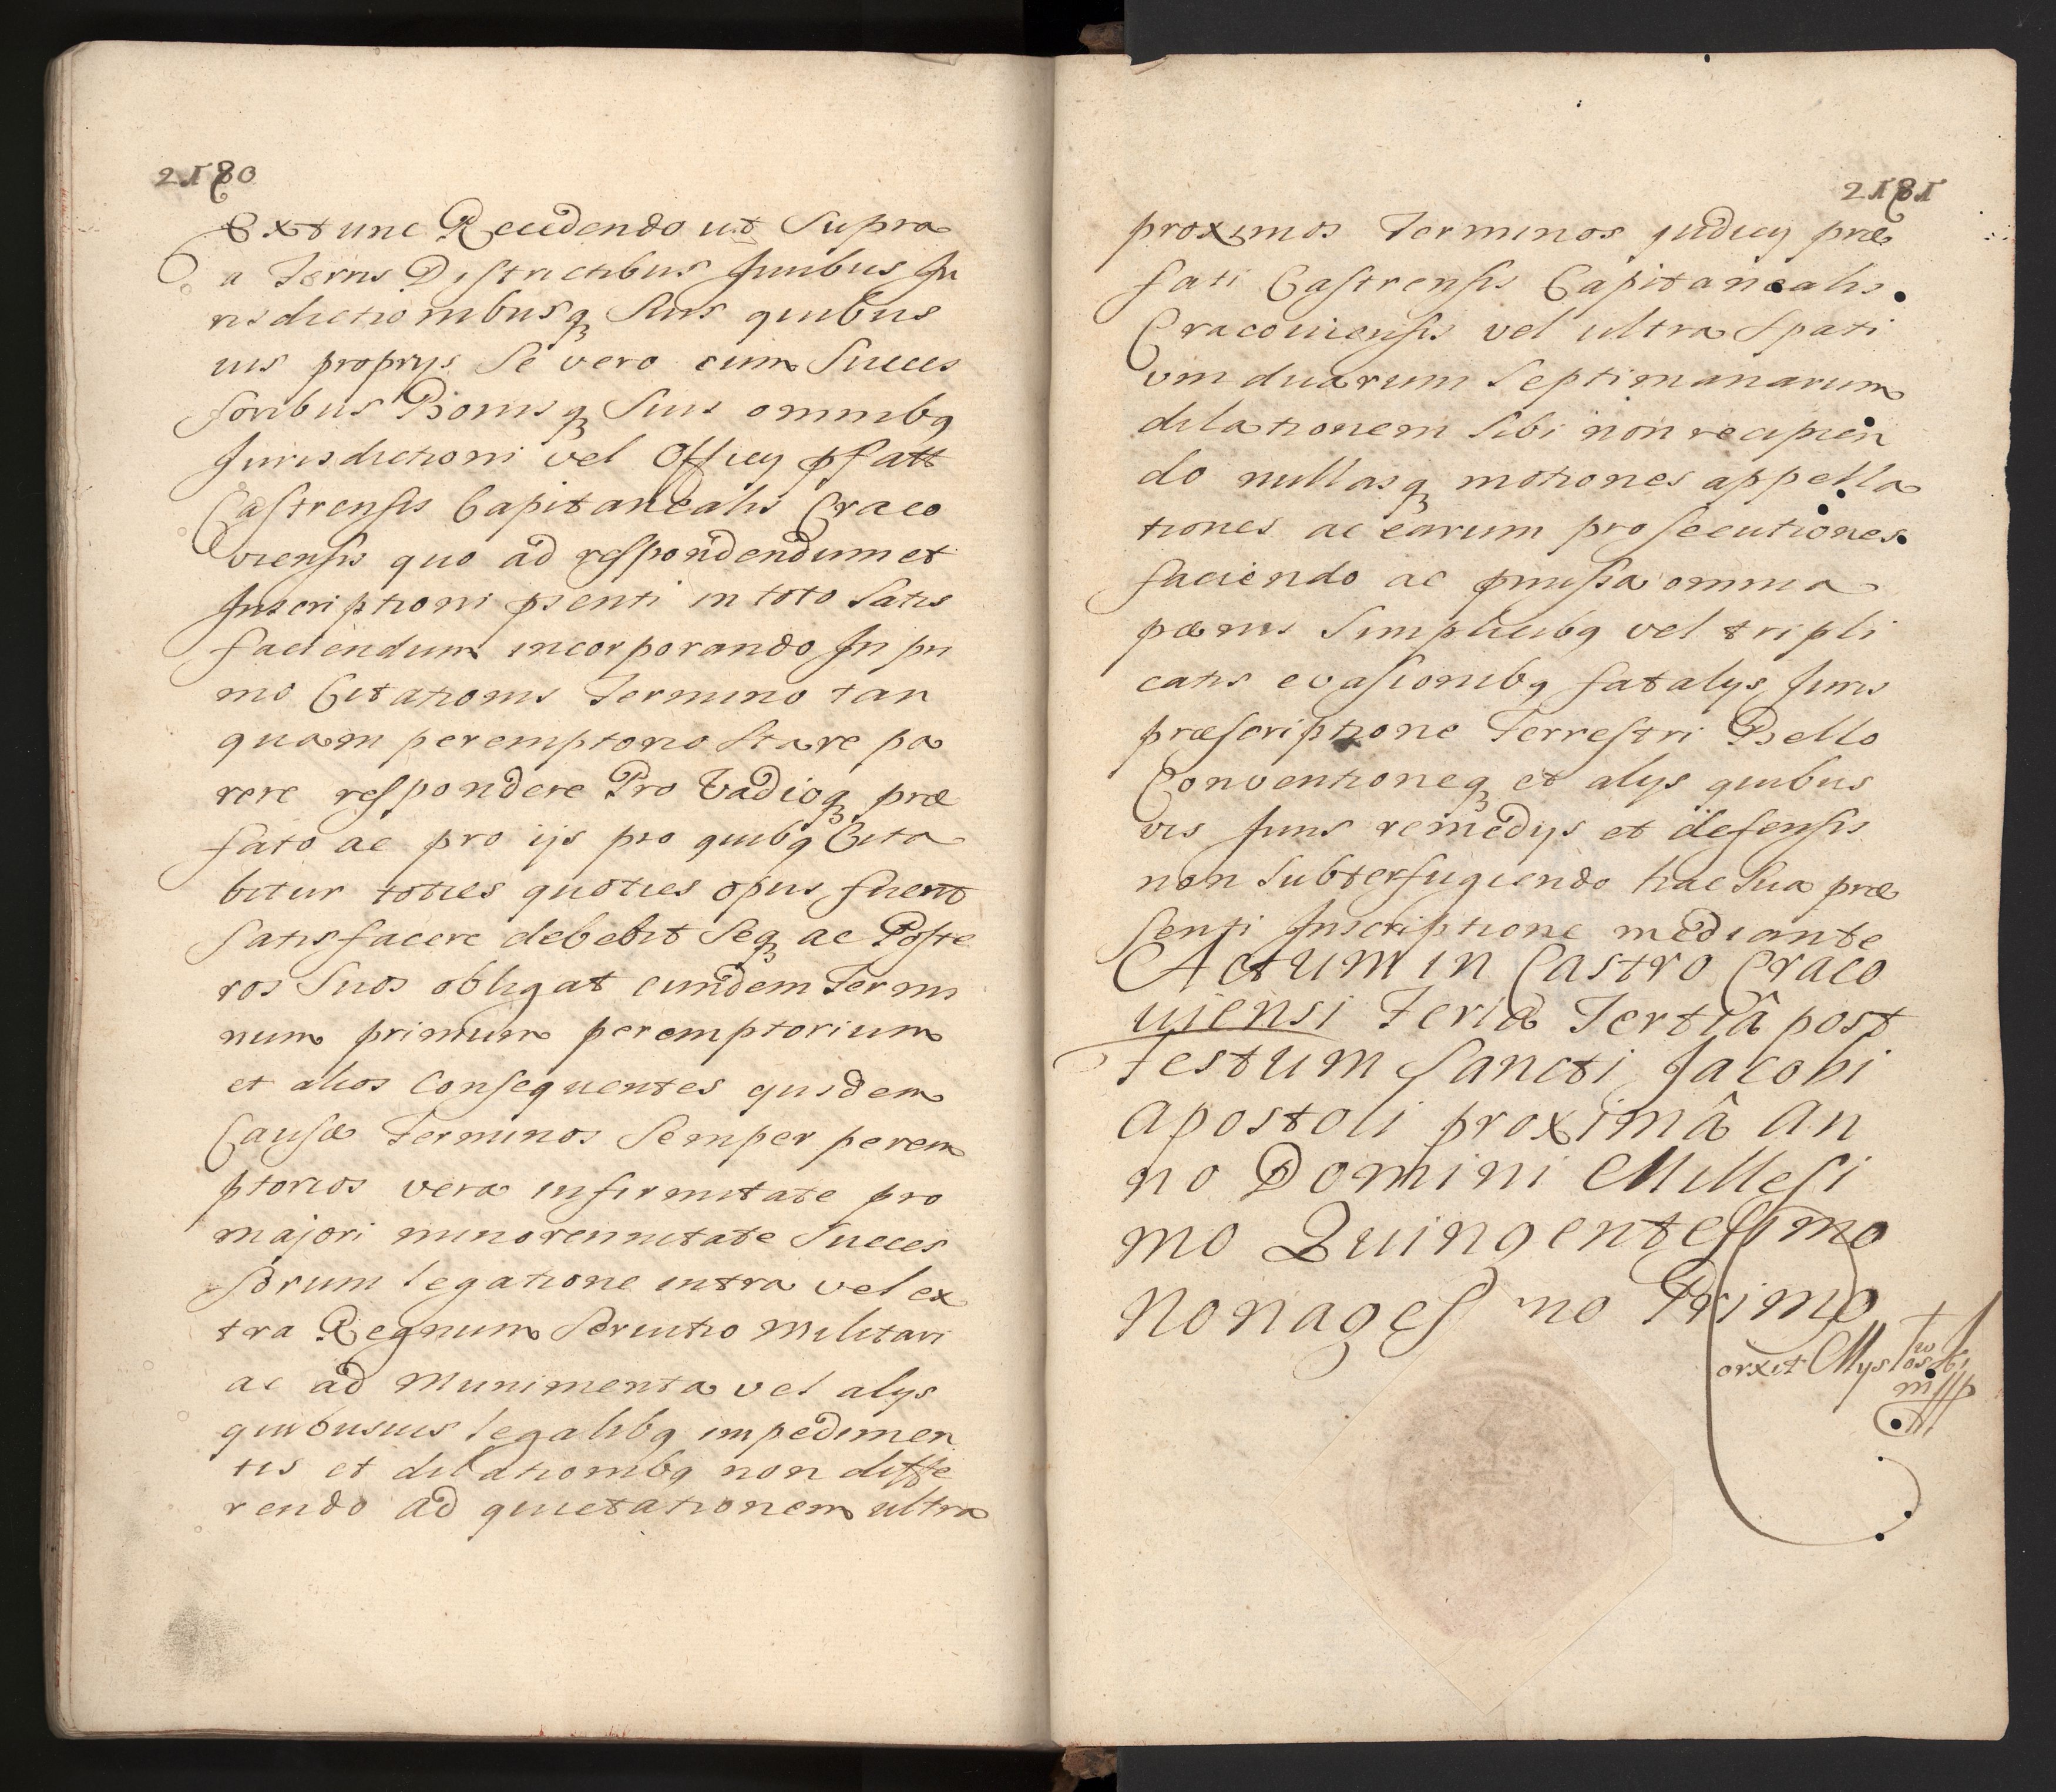 2180
Extunc Recedendo ut Supra
a Terris Districtibus Iuribus Iu
risdictionibusq Suis quibus
uis proprys Se vero cum Succes
soribus Bonisq Suis omnibq
Iurisdictioni vel Officy pfatt
Castrensis Capitanealis Craco
viensis quo ad respondendum et
Inscriptioni psenti in toto Satis
faciendum incorporando In pri
mo Citationis Termino tan
quam peremptorio Stare pa
rere respondere Pro Vadioq præ
fato ac pro ijs pro quibq Cita
bitur toties quoties opus fuerit
Satisfacere debebit Seq ac Poste
ros Suos obligat eundem Termi
num primum peremptorium
et alios Consequentes eiusdem
Causæ Terminos Semper perem
ptorios vera infirmitate pro
majori minorennitate Succes
sorum legatione intra vel ex
tra Regnum Servitio Militari
ac ad Munimenta vel alys
quibusuis legalibq impedimen
tis et dilationibq non diffe
rendo ad quietationem ultra
2181
proximos Terminos judicy præ
fati Castrensis Capitanealis
Cracouiensis vel ultra Spati
um duarum Septimanarum
dilationem Sibi non recipien
do nullasq motiones appella
tiones ac earum prosecutiones
faciendo ac pmissa omnia
pænis Simplicibq vel tripli
catis evasionibq fatalys Iuris
præscriptione Terrestri Bello
Conventioneq et alys quibus
vis Iuris remedys et defensis
non Subterfugiendo hac Sua præ
senti Inscriptione mediante
Actum in Castro Craco
uiensi Feria Tertiâ post
Festum Sancti Jacobi
Apostoli proximâ An
no Domini Millesi
mo Quingentesimo
Nonages mo Primo